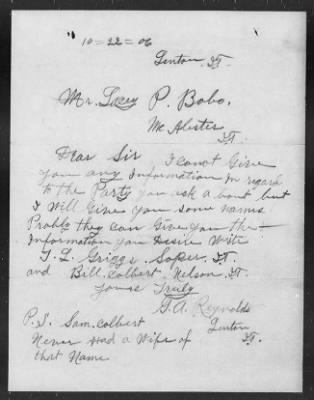 10-22-06
Linton I.T.
Mr. Lacey P. Bobo.
Mc Alester
I.T.
Dear Sir I canot Give
you any Information In regard
to the Party you ask a bout but
I will Give you some names
Probly they can Give you the
Information you Desire Write
T. L. Griggs. Soper. I.T.
and Bill. Colbert. Nelson. I.T.
Yours Truly
G. A. Reynolds
Linton
I.T.
P.S. Sam. Colbert
Never Had a Wife of
that Name